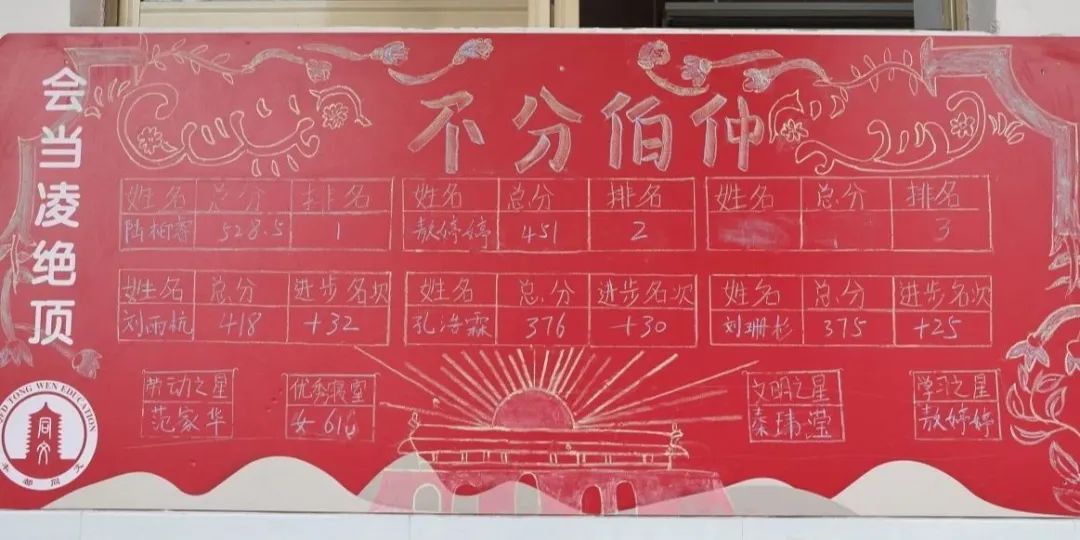 会当凌绝顶
不分伯仲
姓名 总分 排名
陆柏睿 528.5 1
姓名 总分 排名
敖婷婷 451 2
姓名 总分 排名
3
姓名 总分 进步名次
刘雨杭 418 +32
姓名 总分 进步名次
孔浩霖 376 +30
姓名 总分 进步名次
刘珊杉 375 +25
劳动之星
范家华
优秀寝室
女 616
文明之星
秦玮滢
学习之星
敖婷婷
TONG WEN EDUCATION
同文